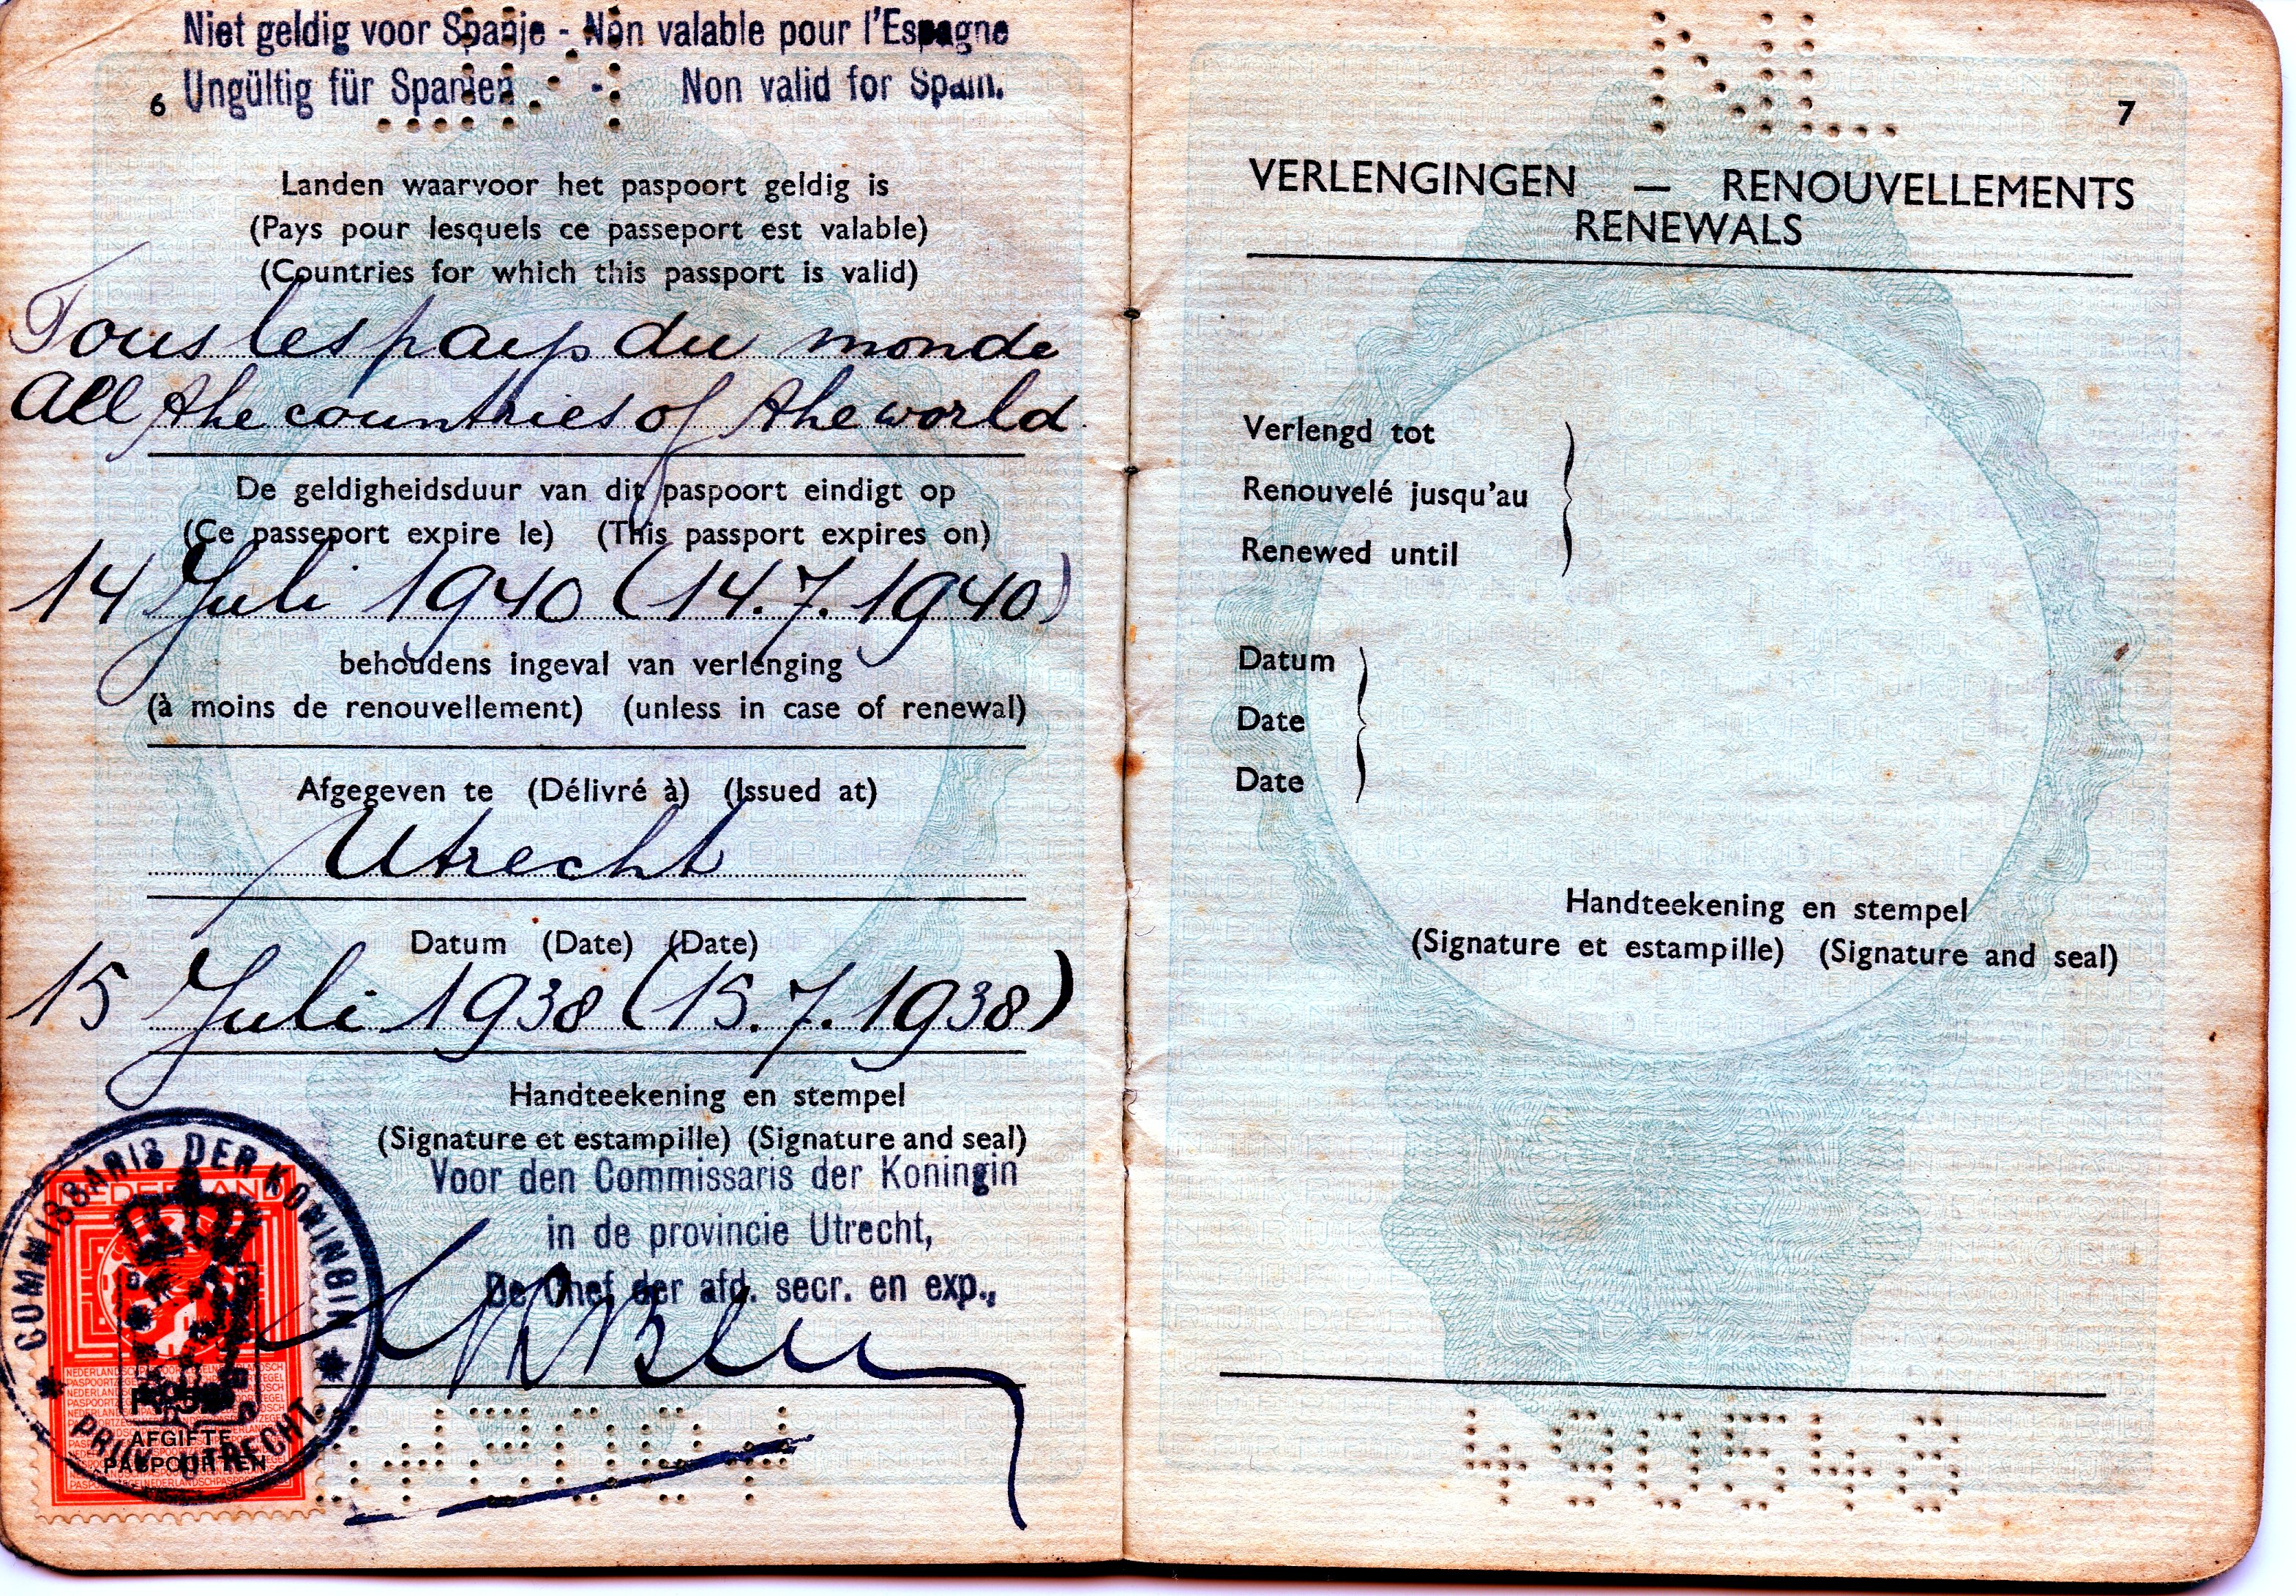 Niet geldig voor Spanje - Non valable pour l'Espagne
Ungültig für Spanien - Non valid for Spain.
6
Landen waarvoor het paspoort geldig is
(Pays pour lesquels ce passeport est valable)
(Countries for which this passport is valid)
Tous les pays du monde
All the countries of the world
De geldigheidsduur van dit paspoort eindigt op
(Ce passeport expire le) (This passport expires on)
14 Juli 1940 (14.7.1940)
behoudens ingeval van verlenging
(à moins de renouvellement) (unless in case of renewal)
Afgegeven te (Délivré à) (Issued at)
Utrecht
Datum (Date) (Date)
15 Juli 1938 (15.7.1938)
Handteekening en stempel
(Signature et estampille) (Signature and seal)
Voor den Commissaris der Koningin
in de provincie Utrecht,
De Chef der afd. secr. en exp.,
COMMISSARIS DER KONINGIN
PROV. UTRECHT
NEDERLAND
AFGIFTE
PASPOORTEN
NL
7
VERLENGINGEN — RENOUVELLEMENTS
RENEWALS
Verlengd tot
Renouvelé jusqu'au
Renewed until
Datum
Date
Date
Handteekening en stempel
(Signature et estampille) (Signature and seal)